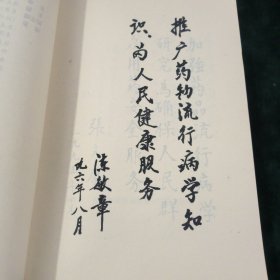 推广药物流行病学知
识、为人民健康服务
陈敏章
九六年八月